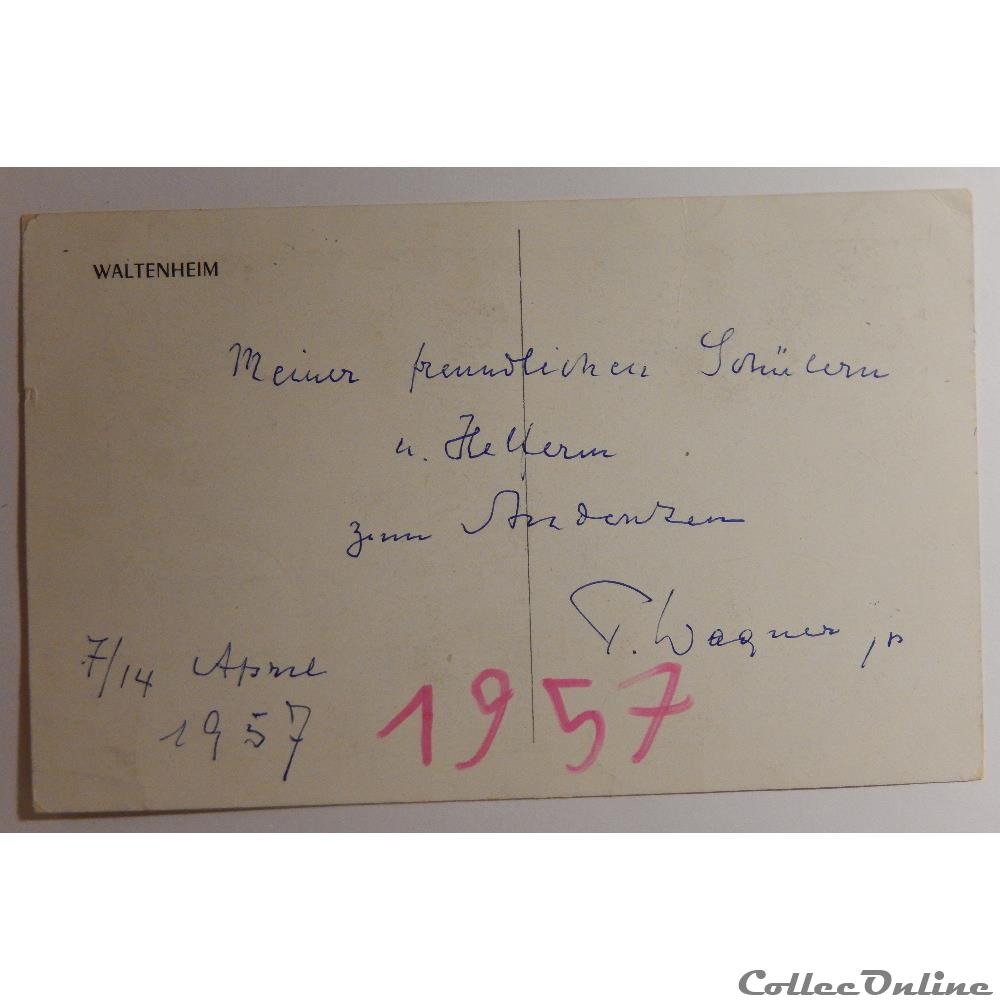 WALTENHEIM
Meiner freundlichen Schülern
u. Helferin
zum Andenken
T. Wagner
7/14 April
1957
1957
CollecOnline